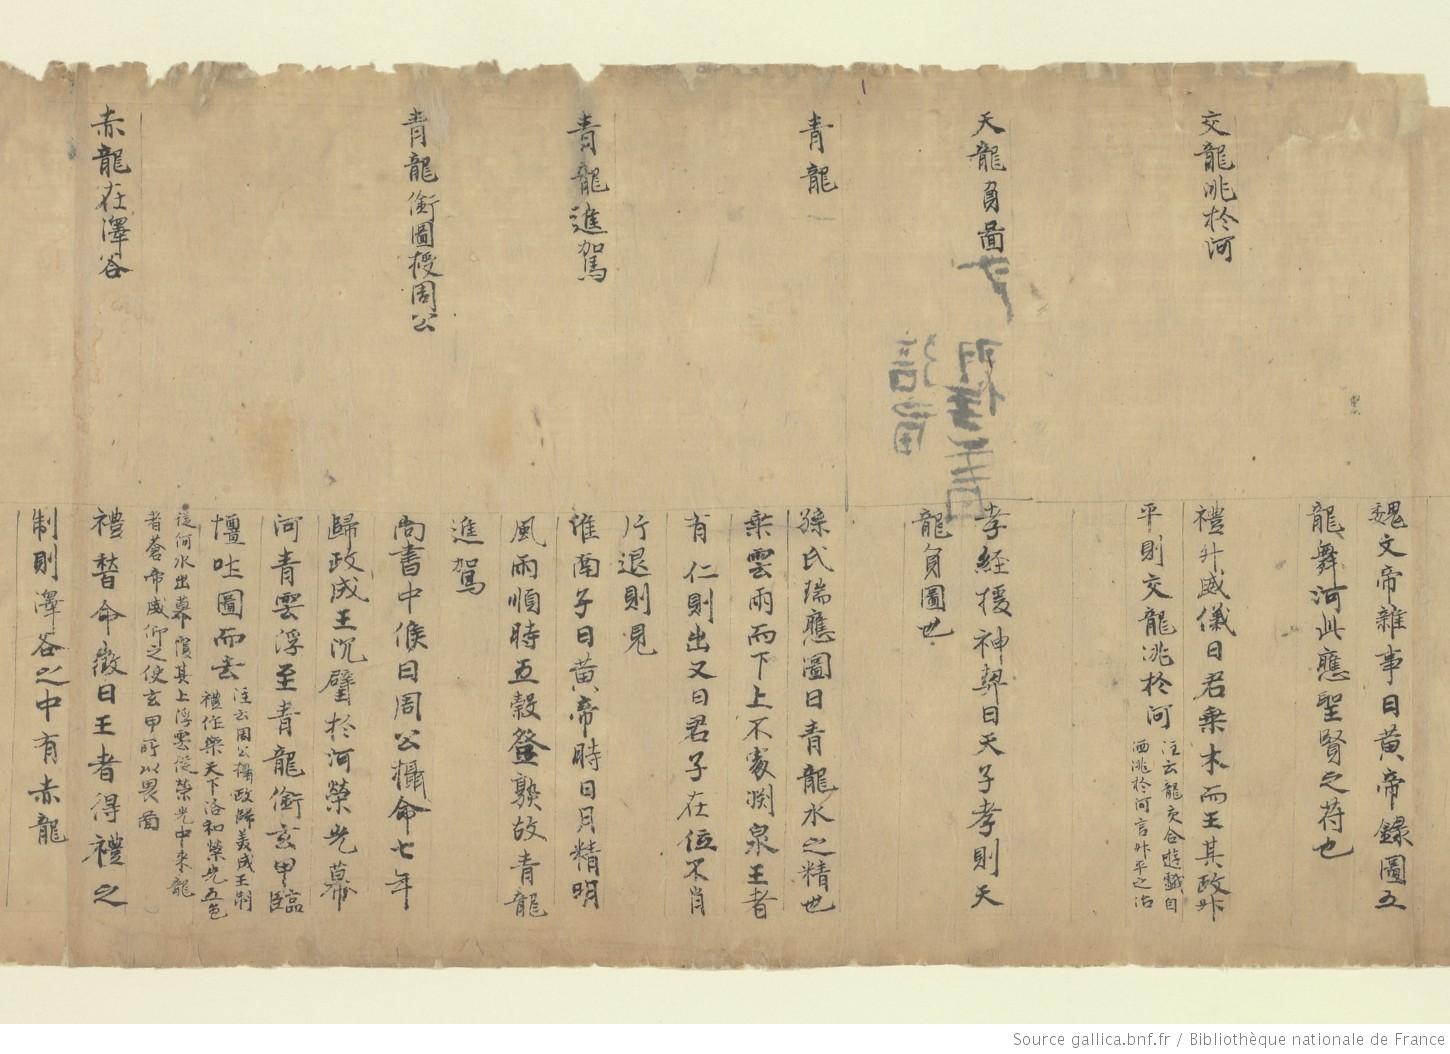 魏文帝雜事曰黃帝錄圖五
龍舞河此應聖賢之苻也
交龍洮於河
禮斗威儀曰君乘木而王其政升
平則交龍洮於河
注云龍交合遊戲自
洒洮於河言升平之治
天龍負啚
孝經援神契曰天子孝則天
龍負圖也
青龍
孫氏瑞應圖曰青龍水之精也
乘雲雨而下上不處渕泉王者
有仁則出又曰君子在位不肖
斥退則見
青龍進駕
淮南子曰黃帝時日月精明
風雨順時五穀登熟故青龍
進駕
青龍銜圖授周公
尚書中候曰周公攝命七年
歸政成王沉璧於河榮光幕
河青雲浮至青龍銜玄甲臨
壇吐圖而去
注云周公攝政歸美成王制
禮作樂天下洽和榮光五色
從河水出幕覆其上浮雲從榮光中來龍
者蒼帝威仰之使玄甲所以畏啚
赤龍在澤谷
禮瞽命徵曰王者得禮之
制則澤谷之中有赤龍
Source gallica.bnf.fr / Bibliothèque nationale de France